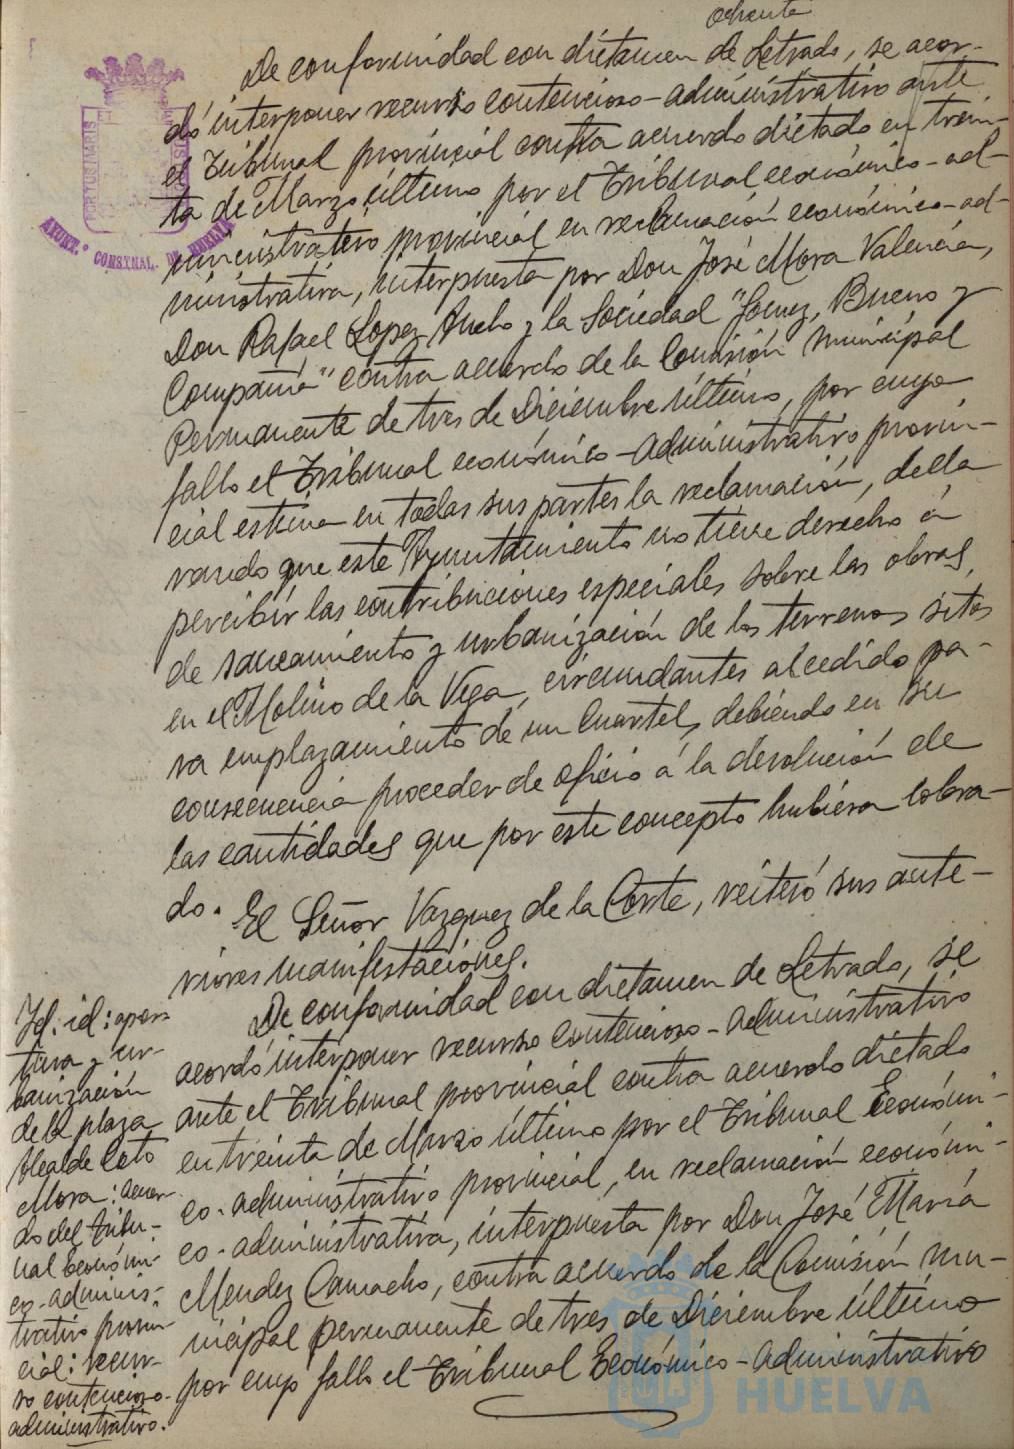 ochenta
De conformidad con dictamen de Letrado, se acor-
dó interponer recurso contencioso-administrativo ante
el Tribunal provincial contra acuerdo dictado en trein-
ta de Marzo último por el Tribunal económico-ad-
ministrativo provincial en reclamación económico-ad-
ministrativa, interpuesta por Don José Mora Valencia,
Don Rafael Lopez Ancho y la Sociedad "Gomez, Bueno y
Compañia" contra acuerdo de la Comisión Municipal
Permanente de tres de Diciembre último, por cuyo
fallo el Tribunal económico-administrativo provin-
cial estima en todas sus partes la reclamación, decla
rando que este Ayuntamiento no tiene derecho á
percibir las contribuciones especiales sobre las obras
de saneamiento y urbanización de los terrenos sitos
en el Molino de la Vega, circundantes al cedido pa-
ra emplazamiento de un Cuartel, debiendo en su
consecuencia proceder de oficio á la devolución de
las cantidades que por este concepto hubiera cobra-
do. El Señor Vazquez de la Corte, reiteró sus ante-
riores manifestaciones.
De conformidad con dictamen de Letrado, se
acordó interponer recurso contencioso-administrativo
ante el Tribunal provincial contra acuerdo dictado
en treinta de Marzo último por el Tribunal Económi-
co-administrativo provincial, en reclamación económi-
co-administrativa, interpuesta por Don José María
Mendez Camacho, contra acuerdo de la Comisión mu-
nicipal permanente de tres de Diciembre último
por cuyo fallo el Tribunal Económico-administrativo
Id. id: aper-
tura y ur-
banización
de la plaza
Alcalde Coto
Mora: acuer-
do del Tribu-
nal Económi-
co-adminis-
trativo provin
cial: recur-
so contencioso-
administrativo.
PORTUS MARIS
AYUNT.º CONSTNAL. DE HUELVA
HUELVA